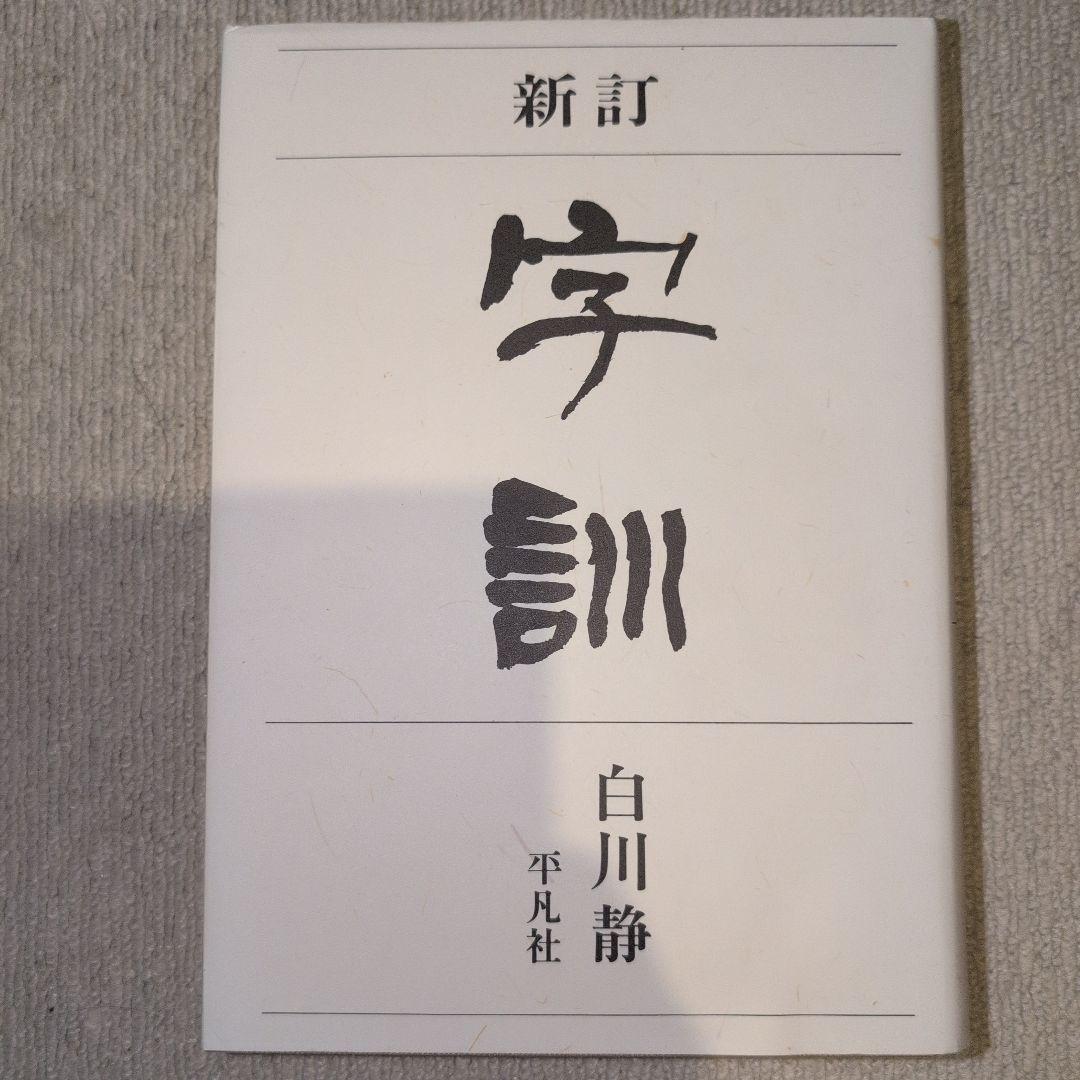 新訂
字訓
白川静
平凡社